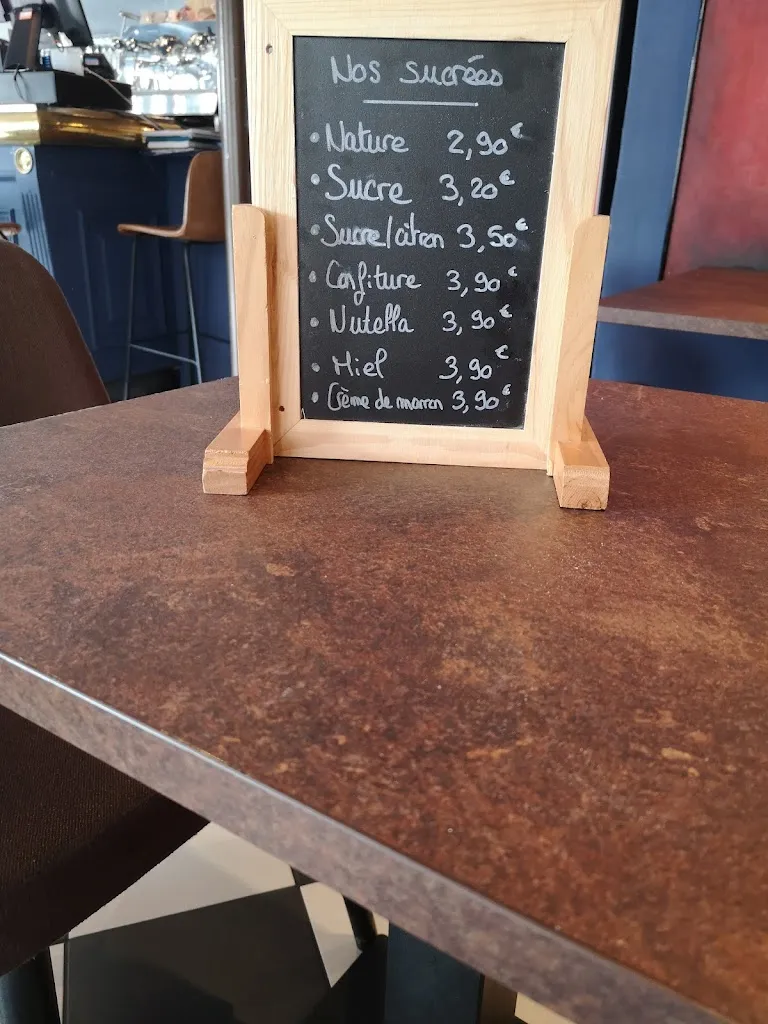 Nos sucrées
• Nature 2,90€
• Sucre 3,20€
• Sucre/citron 3,50€
• Confiture 3,90€
• Nutella 3,90€
• Miel 3,90€
• Crème de marron 3,90€